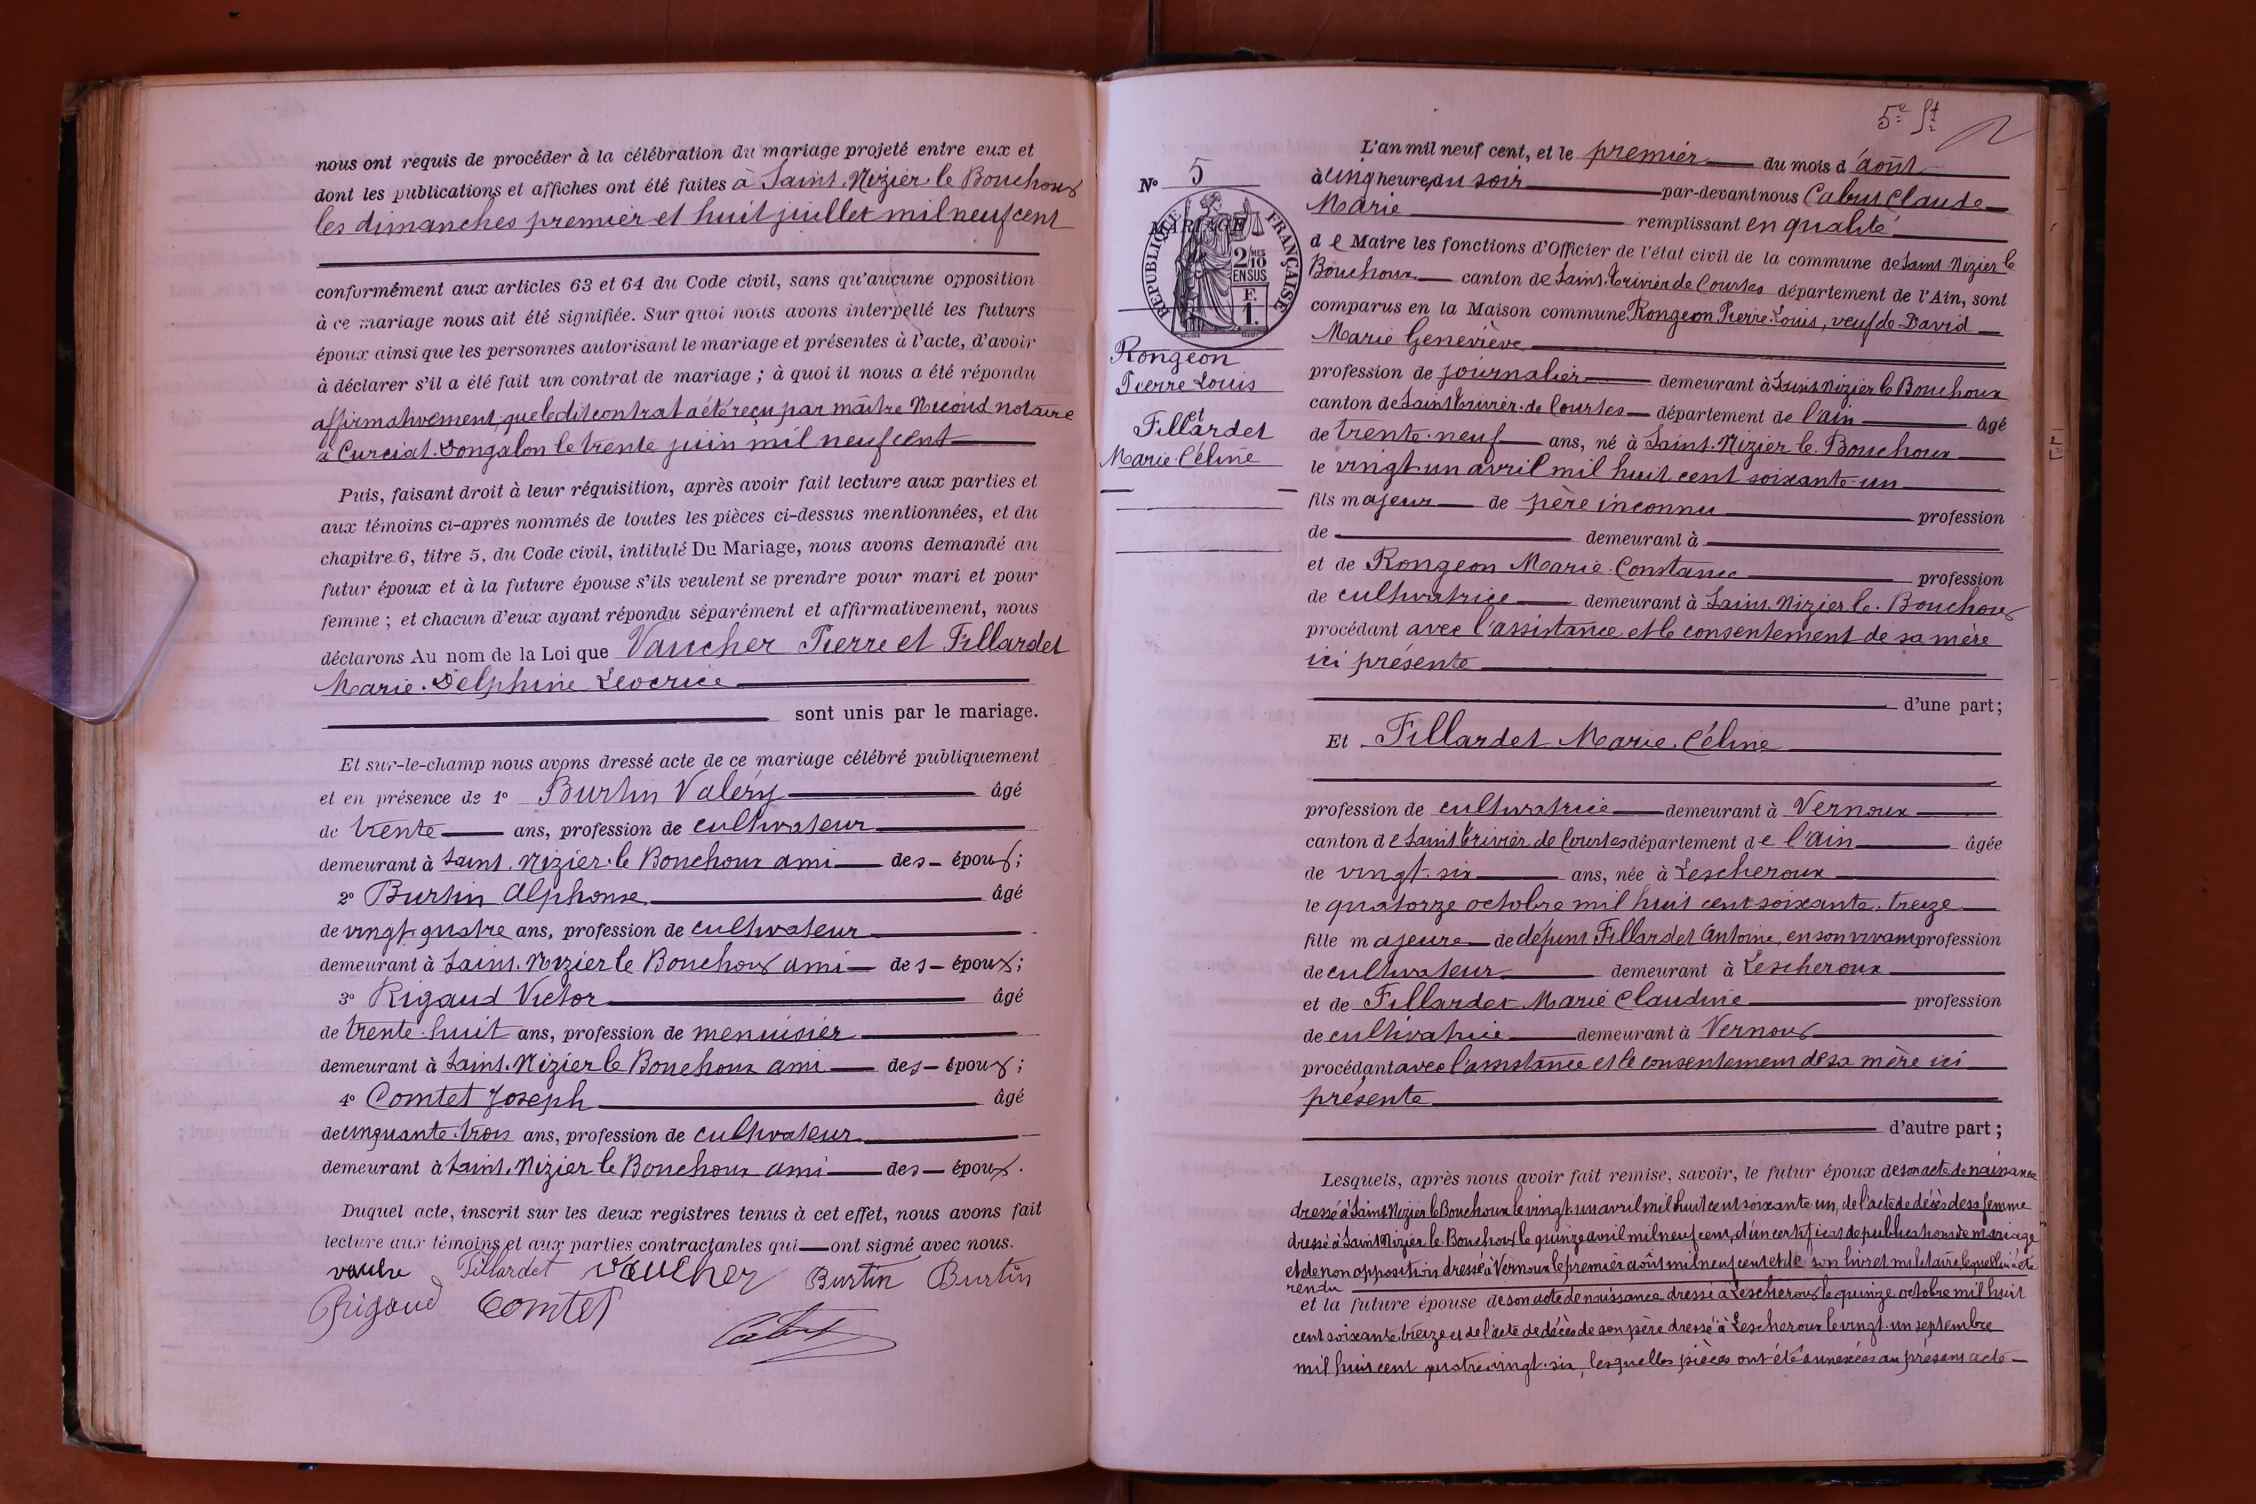 nous ont requis de procéder à la célébration du mariage projeté entre eux et
dont les publications et affiches ont été faites à Saint-Nizier-le Bouchoux
les dimanches premier et huit juillet mil neuf cent
conformément aux articles 63 et 64 du Code civil, sans qu'aucune opposition
à ce mariage nous ait été signifiée. Sur quoi nous avons interpellé les futurs
époux ainsi que les personnes autorisant le mariage et présentes à l'acte, d'avoir
à déclarer s'il a été fait un contrat de mariage ; à quoi il nous a été répondu
affirmativement, que ledit contrat a été reçu par maître notaire
à Curciat-Dongalon le trente juin mil neuf cent
Puis, faisant droit à leur réquisition, après avoir fait lecture aux parties et
aux témoins ci-après nommés de toutes les pièces ci-dessus mentionnées, et du
chapitre 6, titre 5, du Code civil, intitulé Du Mariage, nous avons demandé au
futur époux et à la future épouse s'ils veulent se prendre pour mari et pour
femme ; et chacun d'eux ayant répondu séparément et affirmativement, nous
déclarons Au nom de la Loi que Vaucher Pierre et Fillardet
Marie-Delphine Léocrice
sont unis par le mariage.
Et sur-le-champ nous avons dressé acte de ce mariage célébré publiquement
et en présence de 1° Burtin Valéry âgé
de trente ans, profession de cultivateur
demeurant à Saint-Nizier-le Bouchoux ami des époux ;
2° Burtin Alphonse âgé
de vingt-quatre ans, profession de cultivateur
demeurant à Saint-Nizier le Bouchoux ami des époux ;
3° Rigaud Victor âgé
de trente-huit ans, profession de menuisier
demeurant à Saint-Nizier le Bouchoux ami des époux ;
4° Comtet Joseph âgé
de cinquante-trois ans, profession de cultivateur
demeurant à Saint-Nizier le Bouchoux ami des époux.
Duquel acte, inscrit sur les deux registres tenus à cet effet, nous avons fait
lecture aux témoins et aux parties contractantes qui ont signé avec nous.
Fillardet Vaucher Burtin Burtin
Rigaud Comtet
Cabut
5e
N° 5
MARIAGE
RÉPUBLIQUE FRANÇAISE
2/10 MES
EN SUS
F.
1.
Rongeon
Pierre Louis
et
Fillardet
Marie-Céline
L'an mil neuf cent, et le premier du mois d'août
à cinq heures du soir par-devant nous Cabut Claude
Marie remplissant en qualité
de Maire les fonctions d'Officier de l'état civil de la commune de Saint-Nizier le
Bouchoux canton de Saint-Trivier de Courtes département de l'Ain, sont
comparus en la Maison commune Rongeon Pierre-Louis, veuf de David
Marie Geneviève
profession de journalier demeurant à Saint Nizier le Bouchoux
canton de Saint Trivier-de Courtes département de l'ain âgé
de trente-neuf ans, né à Saint-Nizier le Bouchoux
le vingt-un avril mil huit cent soixante-un
fils majeur de père inconnu profession
de demeurant à
et de Rongeon Marie-Constance profession
de cultivatrice demeurant à Saint-Nizier le-Bouchoux
procédant avec l'assistance et le consentement de sa mère
ici présente
d'une part ;
Et Fillardet Marie-Céline
profession de cultivatrice demeurant à Vernoux
canton de Saint Trivier de Courtes département de l'ain âgée
de vingt-six ans, née à Lescheroux
le quatorze octobre mil huit cent soixante-treize
fille majeure de défunt Fillardet Antoine, en son vivant profession
de cultivateur demeurant à Lescheroux
et de Fillardet Marie Claudine profession
de cultivatrice demeurant à Vernoux
procédant avec l'assistance et le consentement de sa mère ici
présente
d'autre part ;
Lesquels, après nous avoir fait remise, savoir, le futur époux de son acte de naissance
dressé à Saint Nizier le Bouchoux le vingt-un avril mil huit cent soixante un, de l'acte de décès de sa femme
dressé à Saint Nizier le Bouchoux le quinze avril mil neuf cent, d'un certificat de publications de mariage
et de non opposition dressé à Vernoux le premier août mil neuf cent et de son livret militaire, lequel lui a été
rendu
et la future épouse de son acte de naissance dressé à Lescheroux le quinze octobre mil huit
cent soixante treize et de l'acte de décès de son père dressé à Lescheroux le vingt-un septembre
mil huit cent quatre-vingt-six, lesquelles pièces ont été annexées au présent acte